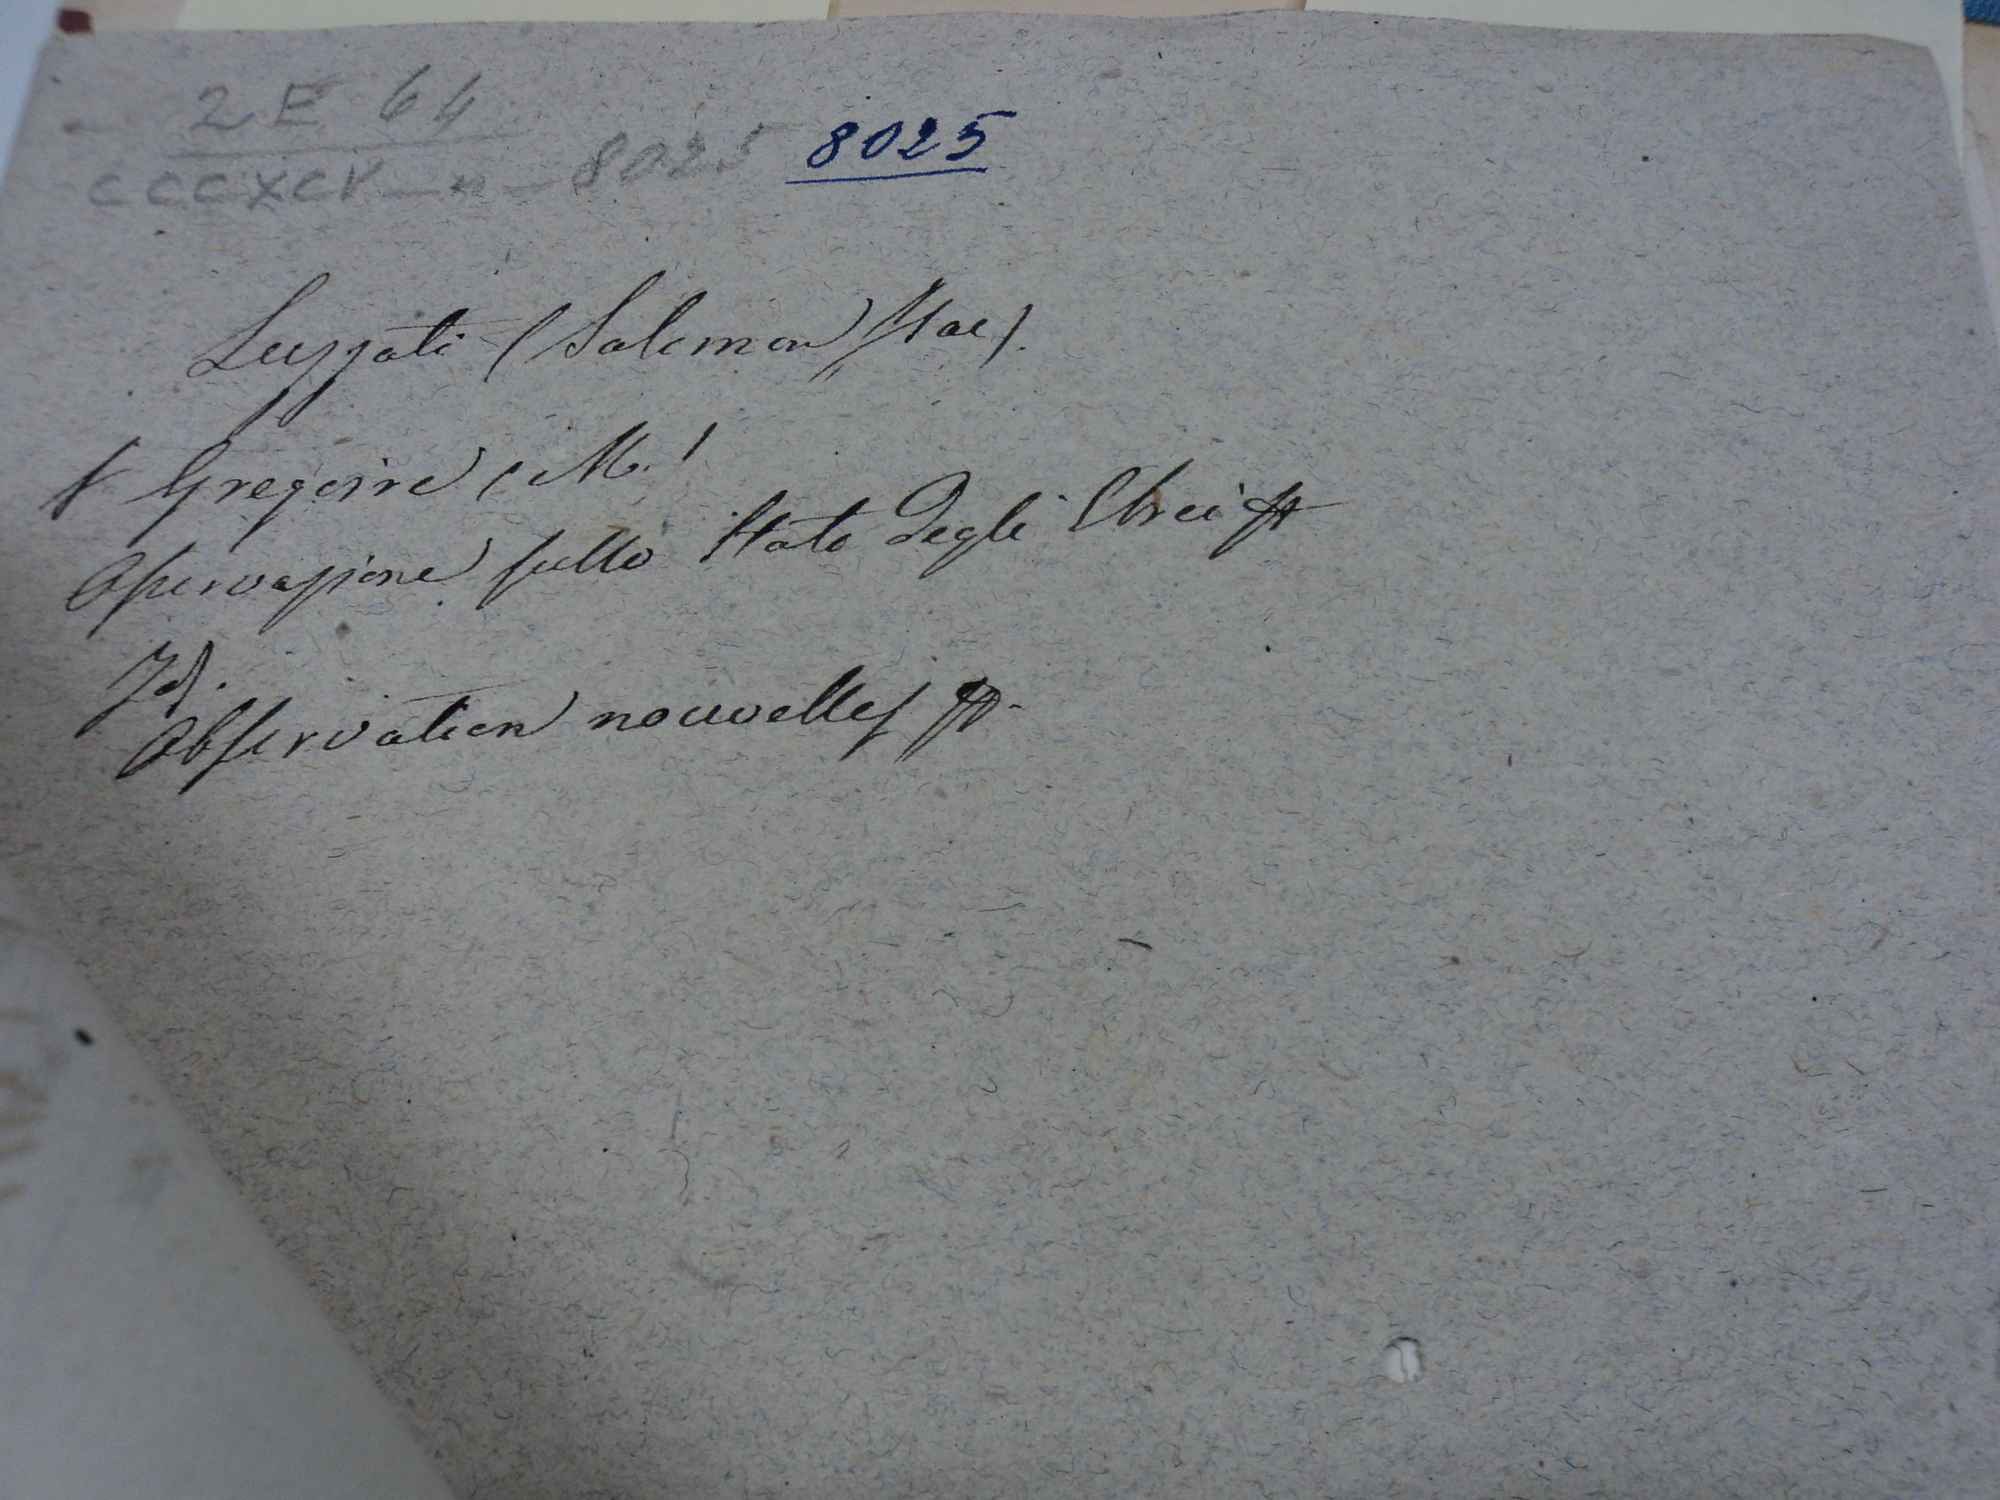 2 E 64
CCCXCV - n - 8025 8025
Luzzati (Salomon Isac).
V Gregoire (M.)
Osservazione sullo stato degli Ebrei
Id.
Observation nouvelles